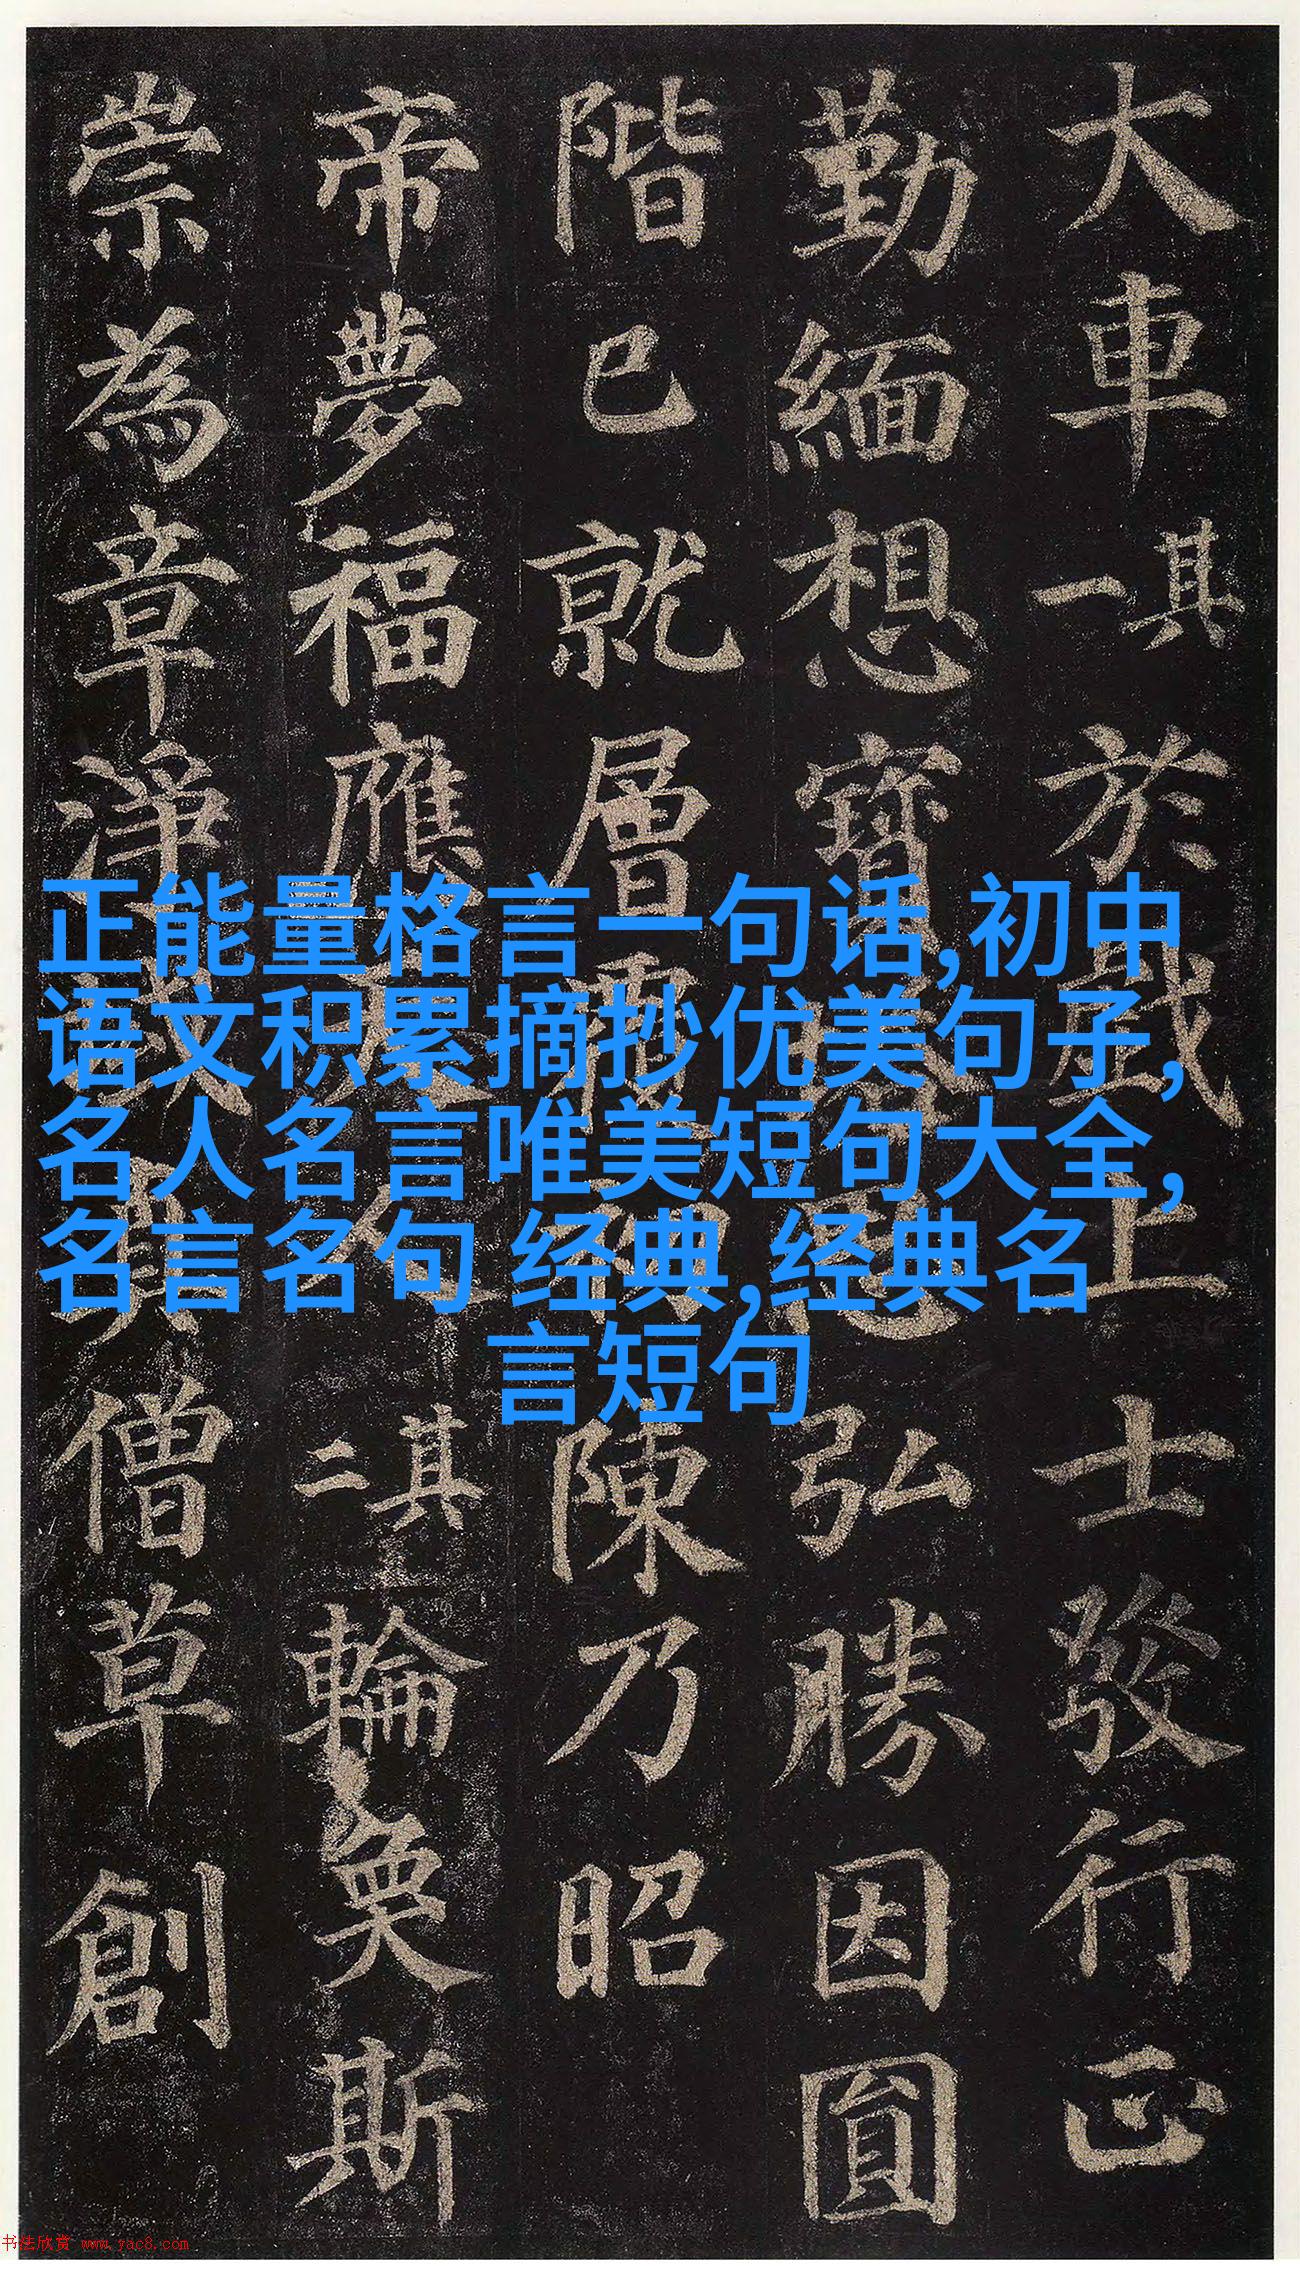 大車其一於戲上士發行正
勤緬想寶塔思弘勝因圓
階已就層覆初陳乃昭
帝夢福應天人其二輪奐斯
崇為章淨域真僧草創
正能量格言一句话,初中
语文积累摘抄优美句子,
名人名言唯美短句大全,
名言名句 经典,经典名
言短句
书法欣赏 www.yac8.com